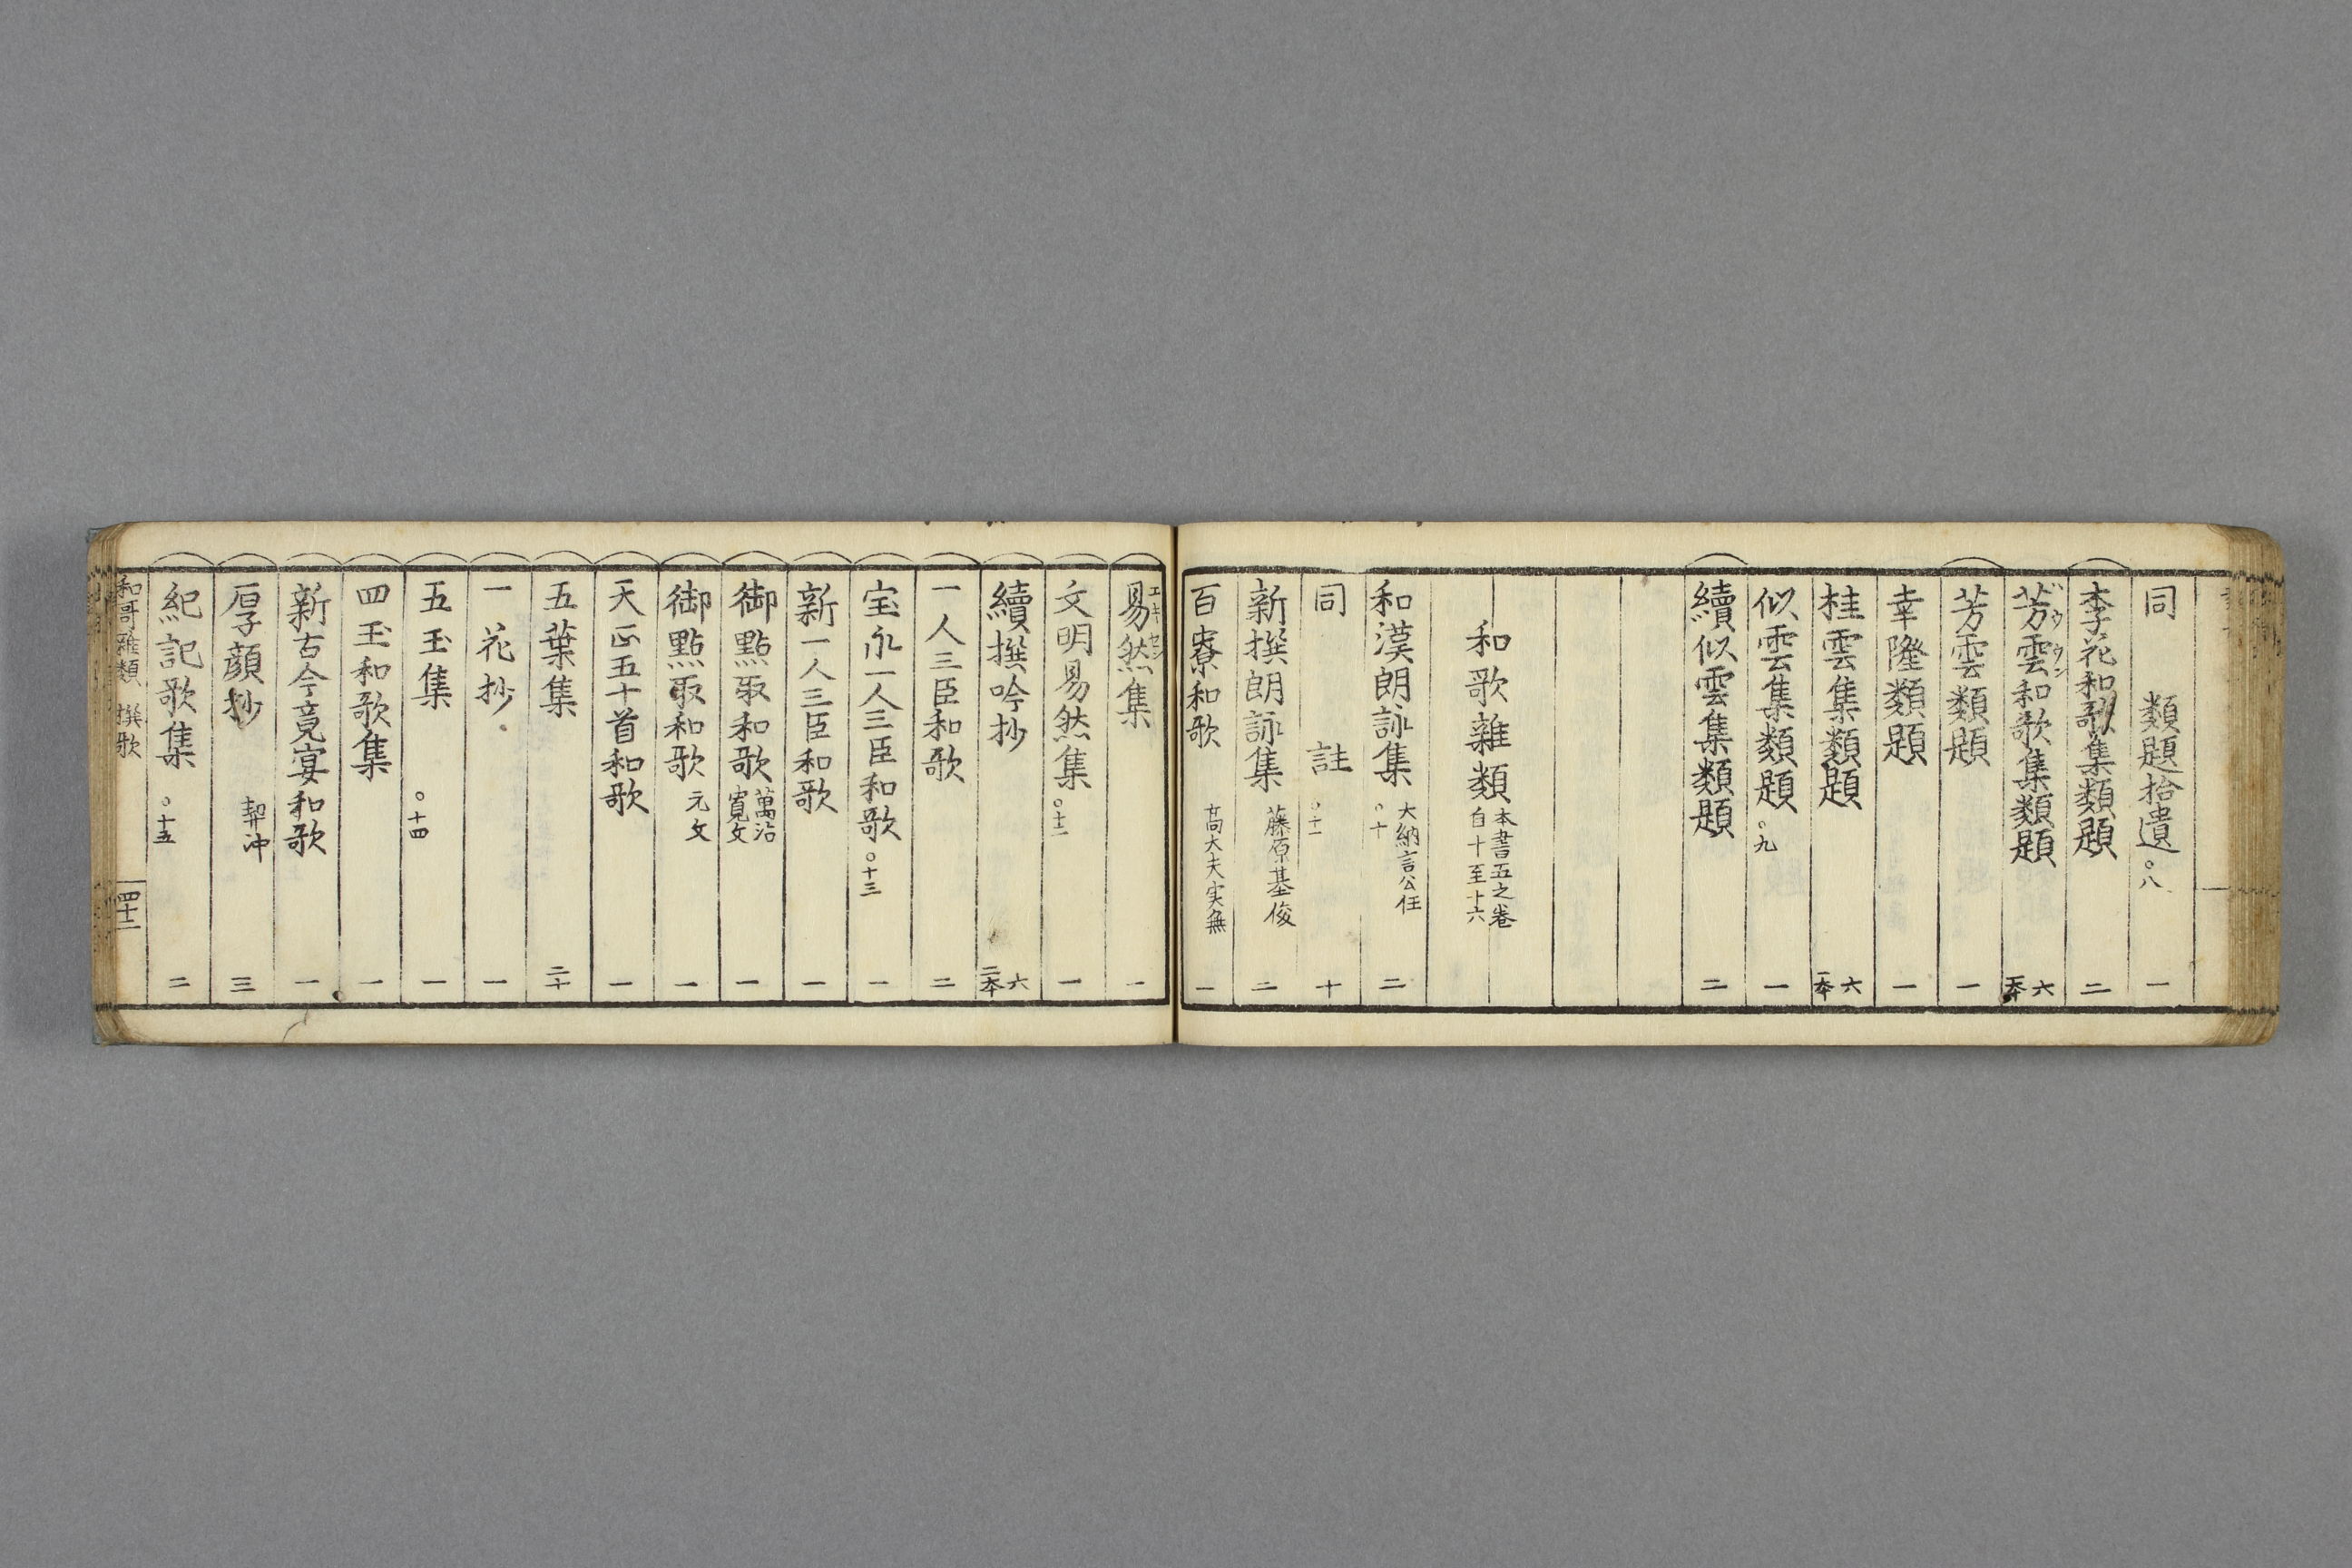 同 類題拾遺 ○八 一
李花和歌集類題 二
芳雲和歌集類題 六
芳雲類題 一
幸隆類題 一
桂雲集類題 六 一本
似雲集類題 ○九 一
續似雲集類題 二
和歌雜類 本書五之巻 自十至十六
和漢朗詠集 大納言公任 ○十 二
同 註 ○十一 十
新撰朗詠集 藤原基俊 二
百寮和歌 高大夫実無 一
易然集 一
文明易然集 ○十二 一
續撰吟抄 六 二本
一人三臣和歌 二
宝永一人三臣和歌 ○十三 一
新一人三臣和歌 一
御點取和歌 萬治 寛文 一
御點取和歌 元文 一
天正五十首和歌 一
五葉集 二十
一花抄 一
五玉集 ○十四 一
四玉和歌集 一
新古今竟宴和歌 一
厚顔抄 契沖 三
紀記歌集 ○十五 二
和哥雜類 撰歌 四十二